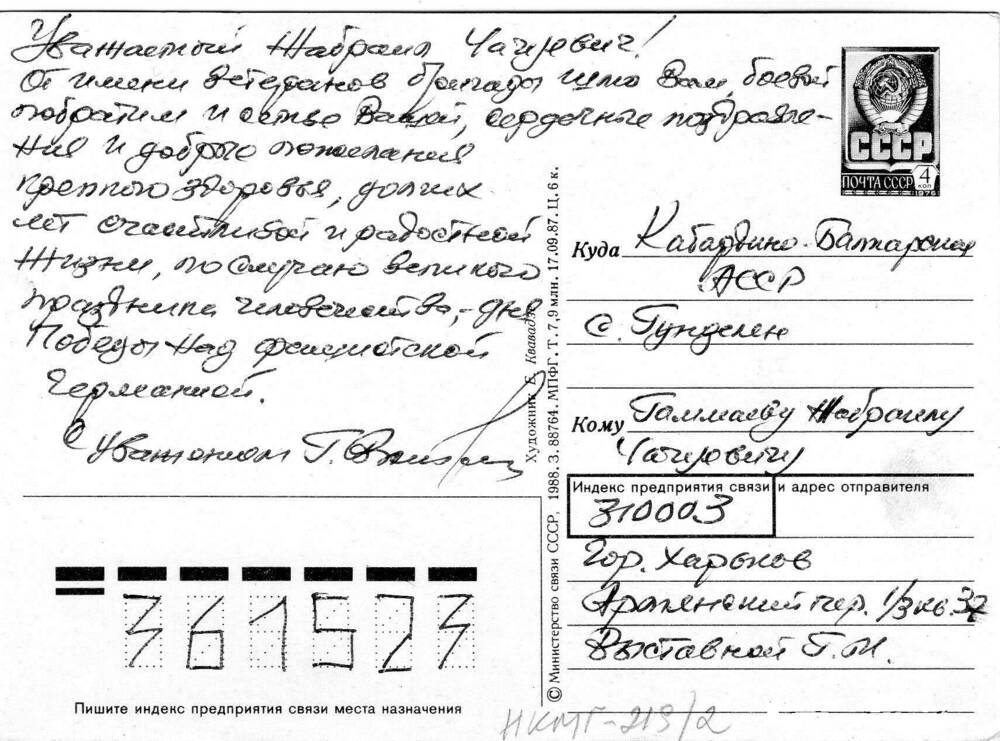 Уважаемый Жабраил Чачуевич!
От имени ветеранов бригады шлю Вам, боевой
побратим и семье Вашей, сердечные поздравле-
ния и добрые пожелания
крепкого здоровья, долгих
лет счастливой и радостной
жизни, по случаю великого
праздника человечества, - дня
Победы над фашистской
Германией.
С уважением Г.
СССР
ПОЧТА СССР 4 коп
1976
Куда Кабардино-Балкарская
АССР
с. Гунделен
Кому Гаммаеву Жабраилу
Чачуевичу
Индекс предприятия связи и адрес отправителя
310003
Гор. Харьков
Армянский пер. 1/3 кв. 32
Выставной Г. И.
361523
Пишите индекс предприятия связи места назначения
© Министерство связи СССР, 1988. З. 88764. МПФГ. Т. 7,9 млн. 17.09.87. Ц. 6 к.
Художник Е. Квавадзе
НКМГ-219/2